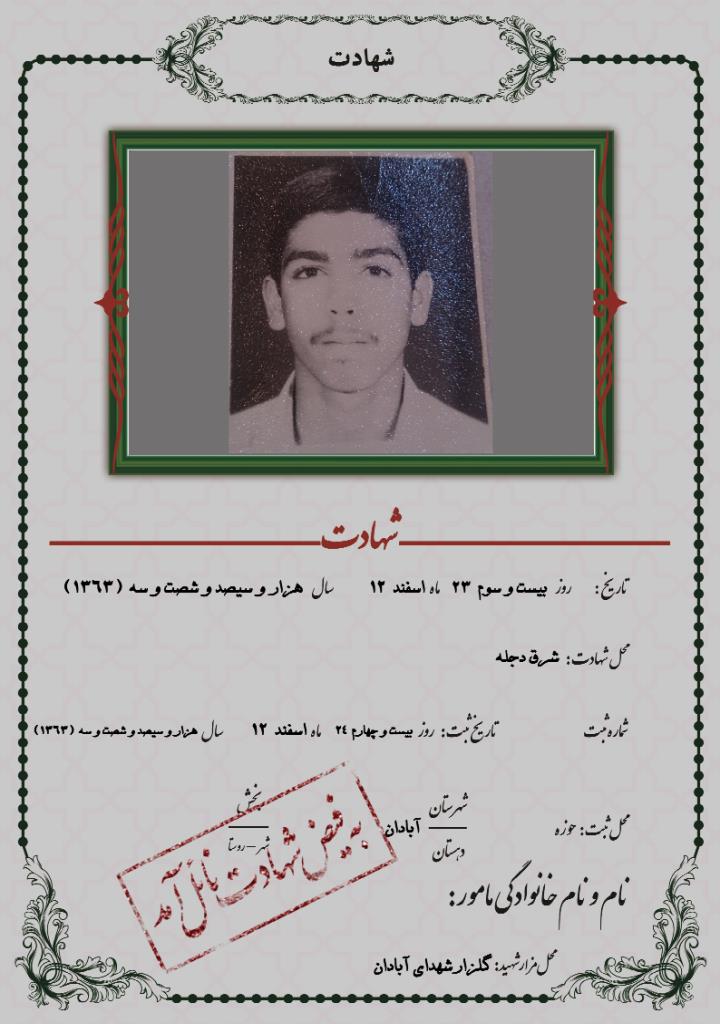 شهادت
شهادت
تاریخ: روز بیست و سوم ۲۳ ماه اسفند ۱۲ سال هزار و سیصد و شصت و سه (۱۳۶۳)
محل شهادت: شرق دجله
شماره ثبت تاریخ ثبت: روز بیست و چهارم ۲۴ ماه اسفند ۱۲ سال هزار و سیصد و شصت و سه (۱۳۶۳)
محل ثبت: حوزه شهرستان آبادان بخش
دهستان شهر-روستا
به فیض شهادت نائل آمد
نام و نام خانوادگی مامور:
محل مزار شهید: گلزار شهدای آبادان